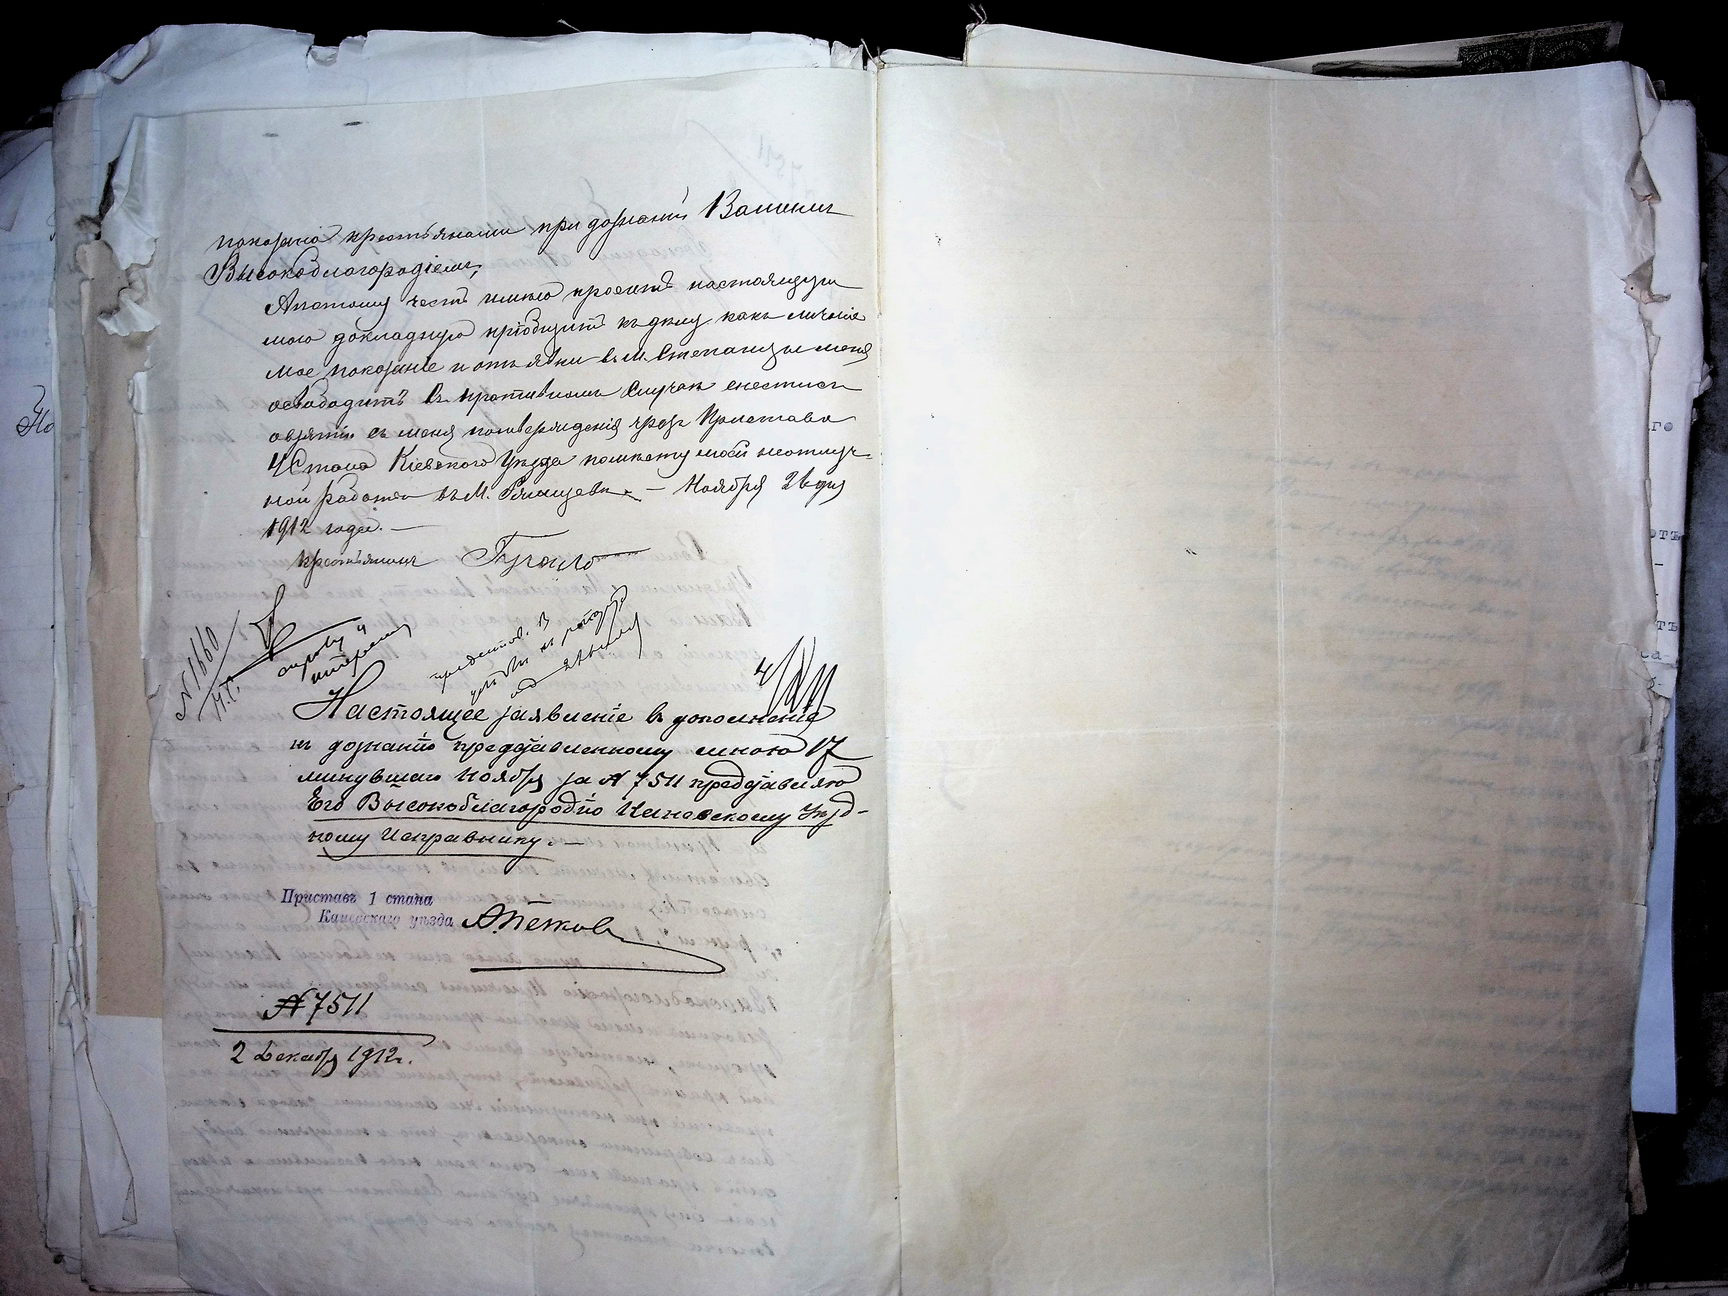 показано крестьянами при дознании Вашимъ
Высокоблагородіемъ,
А потому честь имѣю просить настоящую
мою докладную пріобщить къ дѣлу какъ личное
мое показаніе и отъ явки въ М. Степанцы меня
освободить въ противномъ случаѣ снестись
о взятіи съ меня подтвержденія чрезъ Пристава
4 Стана Кіевскаго Уѣзда по мѣсту моей неотлуч-
ной работы въ М. Ржищевѣ. — Ноября 26 дня
1912 года. —
Крестьянинъ
N 1660
4/XII
Настоящее заявленіе въ дополненіе
къ дознанію представленному мною 17
минувшаго ноября за № 7511 представляю
Его Высокоблагородію Каневскому Уѣзд-
ному Исправнику. —
Приставъ 1 стана
Каневскаго уѣзда
№ 7511
2 Декабря 1912 г.